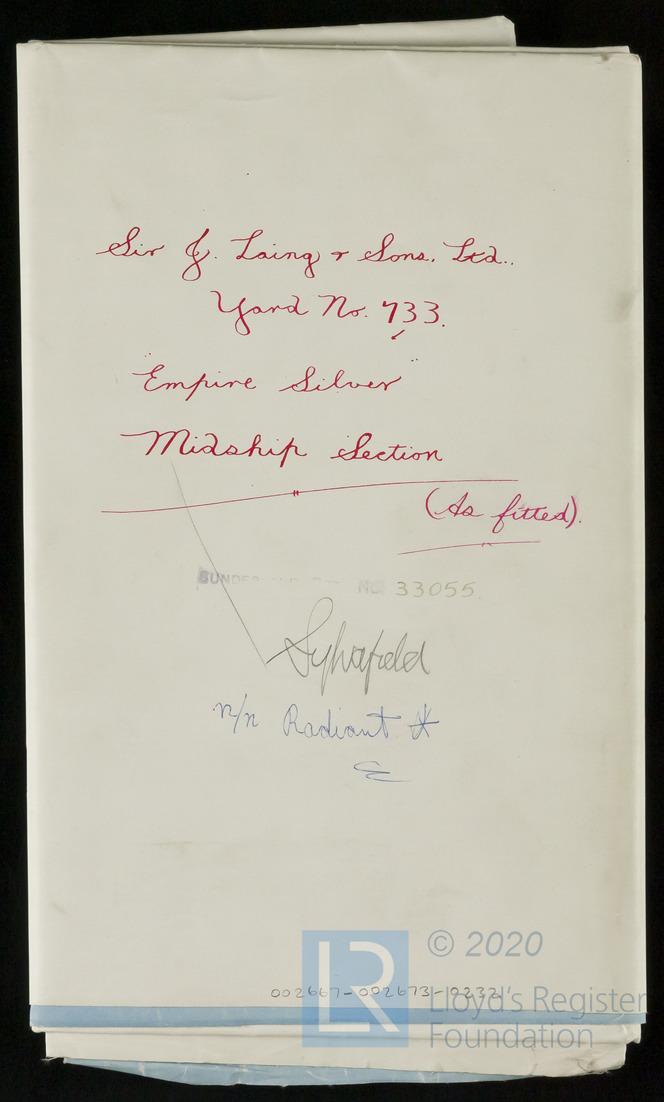 Sir J. Laing & Sons. Ltd..
Yard No. 733.
"Empire Silver"
Midship Section
(As fitted).
No 33055.
Sylvafield
n/n Radiant
© 2020
002667-002673-0232
LR Lloyd's Register
Foundation